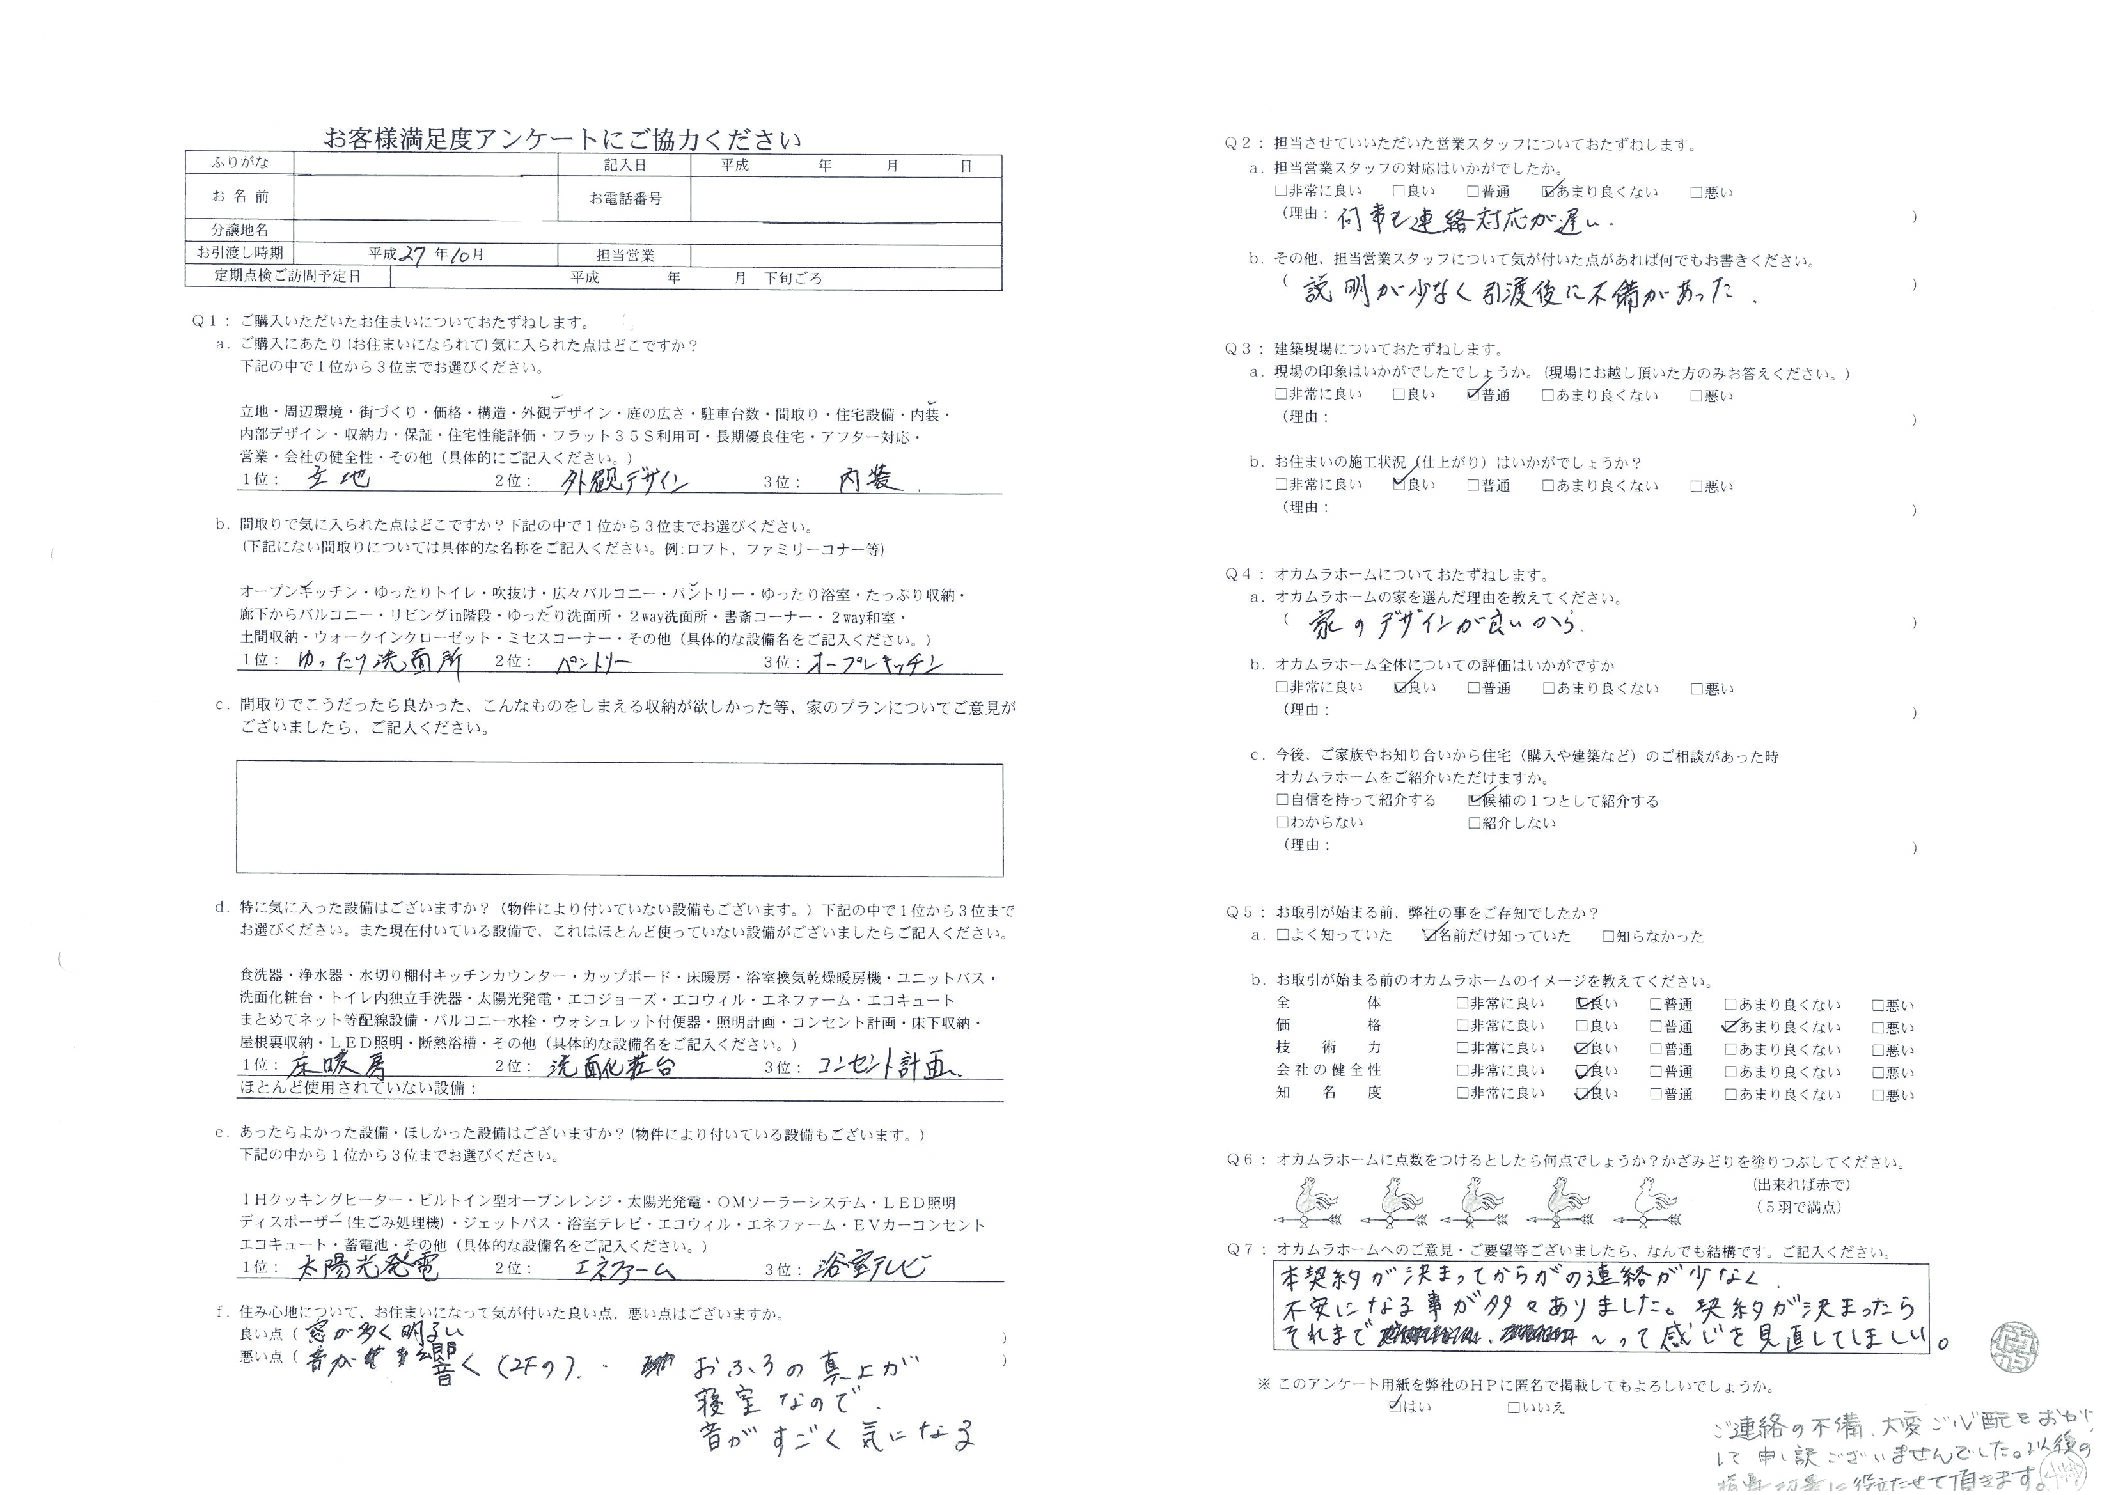 お客様満足度アンケートにご協力ください
ふりがな 記入日 平成 年 月 日
お名前 お電話番号
分譲地名
お引渡し時期 平成27年10月 担当営業
定期点検ご訪問予定日 平成 年 月 下旬ごろ
Q1：ご購入いただいたお住まいについておたずねします。
a．ご購入にあたり(お住まいになられて)気に入られた点はどこですか？
下記の中で1位から3位までお選びください。
立地・周辺環境・街づくり・価格・構造・外観デザイン・庭の広さ・駐車台数・間取り・住宅設備・内装・
内部デザイン・収納力・保証・住宅性能評価・フラット35S利用可・長期優良住宅・アフター対応・
営業・会社の健全性・その他（具体的にご記入ください。）
1位：立地 2位：外観デザイン 3位：内装
b．間取りで気に入られた点はどこですか？下記の中で1位から3位までお選びください。
(下記にない間取りについては具体的な名称をご記入ください。例:ロフト、ファミリーコナー等)
オープンキッチン・ゆったりトイレ・吹抜け・広々バルコニー・パントリー・ゆったり浴室・たっぷり収納・
廊下からバルコニー・リビングin階段・ゆったり洗面所・2way洗面所・書斎コーナー・2way和室・
土間収納・ウォークインクローゼット・ミセスコーナー・その他（具体的な設備名をご記入ください。）
1位：ゆったり洗面所 2位：パントリー 3位：オープンキッチン
c．間取りでこうだったら良かった、こんなものをしまえる収納が欲しかった等、家のプランについてご意見が
ございましたら、ご記入ください。
d．特に気に入った設備はございますか？（物件により付いていない設備もございます。）下記の中で1位から3位まで
お選びください。また現在付いている設備で、これはほとんど使っていない設備がございましたらご記入ください。
食洗器・浄水器・水切り棚付キッチンカウンター・カップボード・床暖房・浴室換気乾燥暖房機・ユニットバス・
洗面化粧台・トイレ内独立手洗器・太陽光発電・エコジョーズ・エコウィル・エネファーム・エコキュート
まとめてネット等配線設備・バルコニー水栓・ウォシュレット付便器・照明計画・コンセント計画・床下収納・
屋根裏収納・LED照明・断熱浴槽・その他（具体的な設備名をご記入ください。）
1位：床暖房 2位：洗面化粧台 3位：コンセント計画
ほとんど使用されていない設備：
e．あったらよかった設備・ほしかった設備はございますか？(物件により付いている設備もございます。)
下記の中から1位から3位までお選びください。
IHクッキングヒーター・ビルトイン型オーブンレンジ・太陽光発電・OMソーラーシステム・LED照明
ディスポーザー(生ごみ処理機)・ジェットバス・浴室テレビ・エコウィル・エネファーム・EVカーコンセント
エコキュート・蓄電池・その他（具体的な設備名をご記入ください。）
1位：太陽光発電 2位：エネファーム 3位：浴室テレビ
f．住み心地について、お住まいになって気が付いた良い点、悪い点はございますか。
良い点（窓が多く明るい）
悪い点（音が 響く（2Fの）． おふろの真上が
寝室なので、
音がすごく気になる
Q2：担当させていいただいた営業スタッフについておたずねします。
a．担当営業スタッフの対応はいかがでしたか。
□非常に良い □良い □普通 ☑あまり良くない □悪い
（理由：何事も連絡対応が遅い．）
b．その他、担当営業スタッフについて気が付いた点があれば何でもお書きください。
（説明が少なく引渡後に不備があった．）
Q3：建築現場についておたずねします。
a．現場の印象はいかがでしたでしょうか。(現場にお越し頂いた方のみお答えください。)
□非常に良い □良い ☑普通 □あまり良くない □悪い
（理由：）
b．お住まいの施工状況（仕上がり）はいかがでしょうか？
□非常に良い ☑良い □普通 □あまり良くない □悪い
（理由：）
Q4：オカムラホームについておたずねします。
a．オカムラホームの家を選んだ理由を教えてください。
（家のデザインが良いから．）
b．オカムラホーム全体についての評価はいかがですか
□非常に良い ☑良い □普通 □あまり良くない □悪い
（理由：）
c．今後、ご家族やお知り合いから住宅（購入や建築など）のご相談があった時
オカムラホームをご紹介いただけますか。
□自信を持って紹介する ☑候補の1つとして紹介する
□わからない □紹介しない
（理由：）
Q5：お取引が始まる前、弊社の事をご存知でしたか？
a．□よく知っていた ☑名前だけ知っていた □知らなかった
b．お取引が始まる前のオカムラホームのイメージを教えてください。
全体 □非常に良い ☑良い □普通 □あまり良くない □悪い
価格 □非常に良い □良い □普通 ☑あまり良くない □悪い
技術力 □非常に良い ☑良い □普通 □あまり良くない □悪い
会社の健全性 □非常に良い ☑良い □普通 □あまり良くない □悪い
知名度 □非常に良い ☑良い □普通 □あまり良くない □悪い
Q6：オカムラホームに点数をつけるとしたら何点でしょうか？かざみどりを塗りつぶしてください。
(出来れば赤で)
（5羽で満点）
Q7：オカムラホームへのご意見・ご要望等ございましたら、なんでも結構です。ご記入ください。
本契約が決まってからがの連絡が少なく、
不安になる事が多々ありました。契約が決まったら
それまで 〜って感じを見直してほしい。
※このアンケート用紙を弊社のHPに匿名で掲載してもよろしいでしょうか。
☑はい □いいえ
ご連絡の不備、大変ご心配をおかけ
して申し訳ございませんでした。以後の
に役立たせて頂きます。